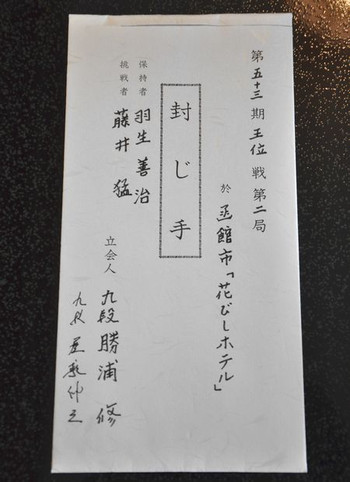 第五十三期王位戦第二局
於 函館市「花びしホテル」
封じ手
保持者 羽生善治
挑戦者 藤井猛
立会人 九段勝浦 修
九段